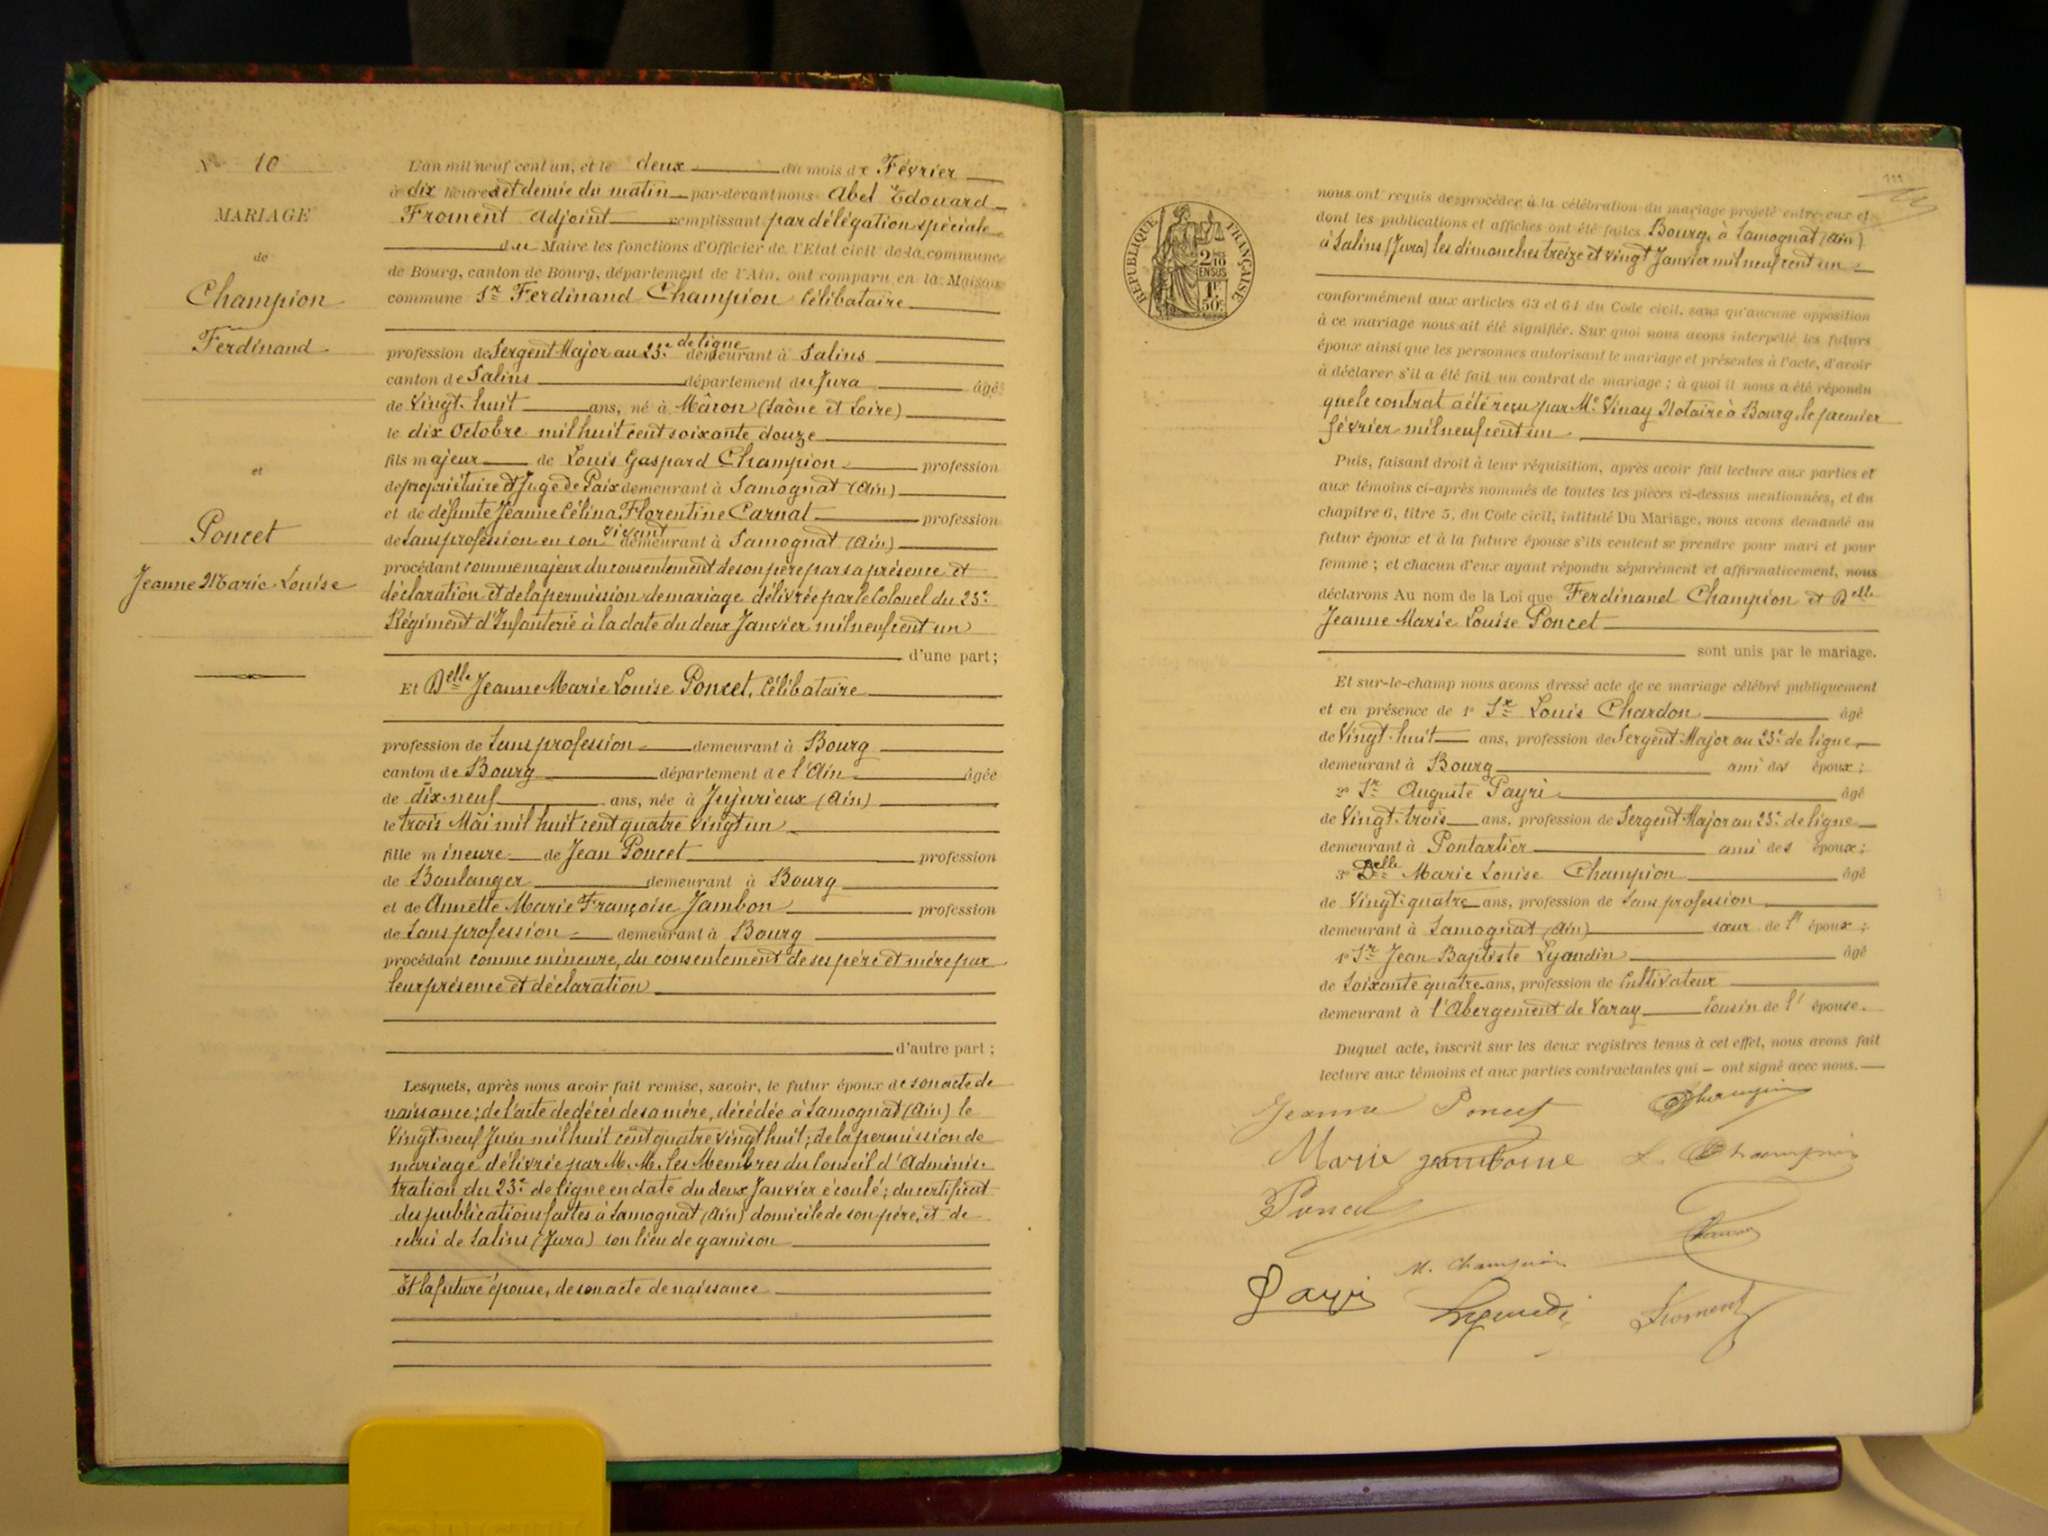 N° 10
MARIAGE
de
Champion
Ferdinand
et
Poncet
Jeanne Marie Louise
L'an mil neuf cent un, et le deux du mois de Février
à dix heures et demie du matin par-devant nous Abel Edouard
Froment Adjoint remplissant par délégation spéciale
du Maire les fonctions d'Officier de l'Etat civil de la commune
de Bourg, canton de Bourg, département de l'Ain, ont comparu en la Maison
commune Sr Ferdinand Champion Célibataire
profession de Sergent-Major au 23e de ligne demeurant à Salins
canton de Salins département du Jura âgé
de Vingt-huit ans, né à Mâcon (Saône et Loire)
le dix Octobre mil huit cent soixante douze
fils majeur de Louis Gaspard Champion profession
de propriétaire et Juge de Paix demeurant à Samognat (Ain)
et de défunte Jeanne Célina Florentine Carnat profession
de Sans profession en son vivant demeurant à Samognat (Ain)
procédant comme majeur du consentement de son père par sa présence et
déclaration et de la permission de mariage délivrée par le Colonel du 23e
Régiment d'Infanterie à la date du deux Janvier mil neuf cent un
d'une part;
Et Delle Jeanne Marie Louise Poncet, Célibataire
profession de Sans profession demeurant à Bourg
canton de Bourg département de l'Ain âgée
de dix-neuf ans, née à Jujurieux (Ain)
le trois Mai mil huit cent quatre vingt un
fille mineure de Jean Poncet profession
de Boulanger demeurant à Bourg
et de Annette Marie Françoise Jambon profession
de Sans profession demeurant à Bourg
procédant comme mineure, du consentement de ses père et mère par
leur présence et déclaration
d'autre part;
Lesquels, après nous avoir fait remise, savoir, le futur époux de son acte de
naissance; de l'acte de décès de sa mère, décédée à Samognat (Ain) le
Vingt-neuf Juin mil huit cent quatre vingt huit; de la permission de
mariage délivrée par M.M. les Membres du Conseil d'Adminis-
tration du 23e de ligne en date du deux Janvier écoulé; du certificat
des publications faites à Samognat (Ain) domicile de son père, et de
celui de Salins (Jura) son lieu de garnison
Et la future épouse, de son acte de naissance
111
REPUBLIQUE FRANÇAISE
2/10 EN SUS
1F 50c
nous ont requis de procéder à la célébration du mariage projeté entre eux et
dont les publications et affiches ont été faites Bourg, à Samognat (Ain)
à Salins (Jura) les dimanches treize et vingt Janvier mil neuf cent un
conformément aux articles 63 et 64 du Code civil, sans qu'aucune opposition
à ce mariage nous ait été signifiée. Sur quoi nous avons interpellé les futurs
époux ainsi que les personnes autorisant le mariage et présentes à l'acte, d'avoir
à déclarer s'il a été fait un contrat de mariage; à quoi il nous a été répondu
que le contrat a été reçu par Me Vinay Notaire à Bourg, le premier
février mil neuf cent un
Puis, faisant droit à leur réquisition, après avoir fait lecture aux parties et
aux témoins ci-après nommés de toutes les pièces ci-dessus mentionnées, et du
chapitre 6, titre 5, du Code civil, intitulé Du Mariage, nous avons demandé au
futur époux et à la future épouse s'ils veulent se prendre pour mari et pour
femme; et chacun d'eux ayant répondu séparément et affirmativement, nous
déclarons Au nom de la Loi que Ferdinand Champion et Delle
Jeanne Marie Louise Poncet
sont unis par le mariage.
Et sur-le-champ nous avons dressé acte de ce mariage célébré publiquement
et en présence de 1° Sr Louis Chardon âgé
de Vingt-huit ans, profession de Sergent Major au 23e de ligne
demeurant à Bourg ami des époux;
2° Sr Auguste Payri âgé
de Vingt-trois ans, profession de Sergent Major au 23e de ligne
demeurant à Pontarlier ami des époux;
3° Delle Marie Louise Champion âgé
de Vingt-quatre ans, profession de Sans profession
demeurant à Samognat (Ain) sœur de l' époux;
4° Sr Jean Baptiste Lyandin âgé
de Soixante quatre ans, profession de Cultivateur
demeurant à l'Abergement de Varay Cousin de l' épouse.
Duquel acte, inscrit sur les deux registres tenus à cet effet, nous avons fait
lecture aux témoins et aux parties contractantes qui - ont signé avec nous.
Jeanne Poncet Champion
Marie L. Champion
Poncet
M. Champion
Payri Froment